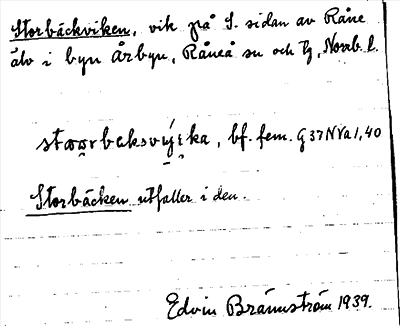 Storbäckviken, vik på S. sidan av Råne
älv i byn Årbyn, Råneå sn och tg, Norrb. l.
bf. fem. G 37 N Va 1, 40
Storbäcken utfaller i den.
Edvin Brännström 1939.